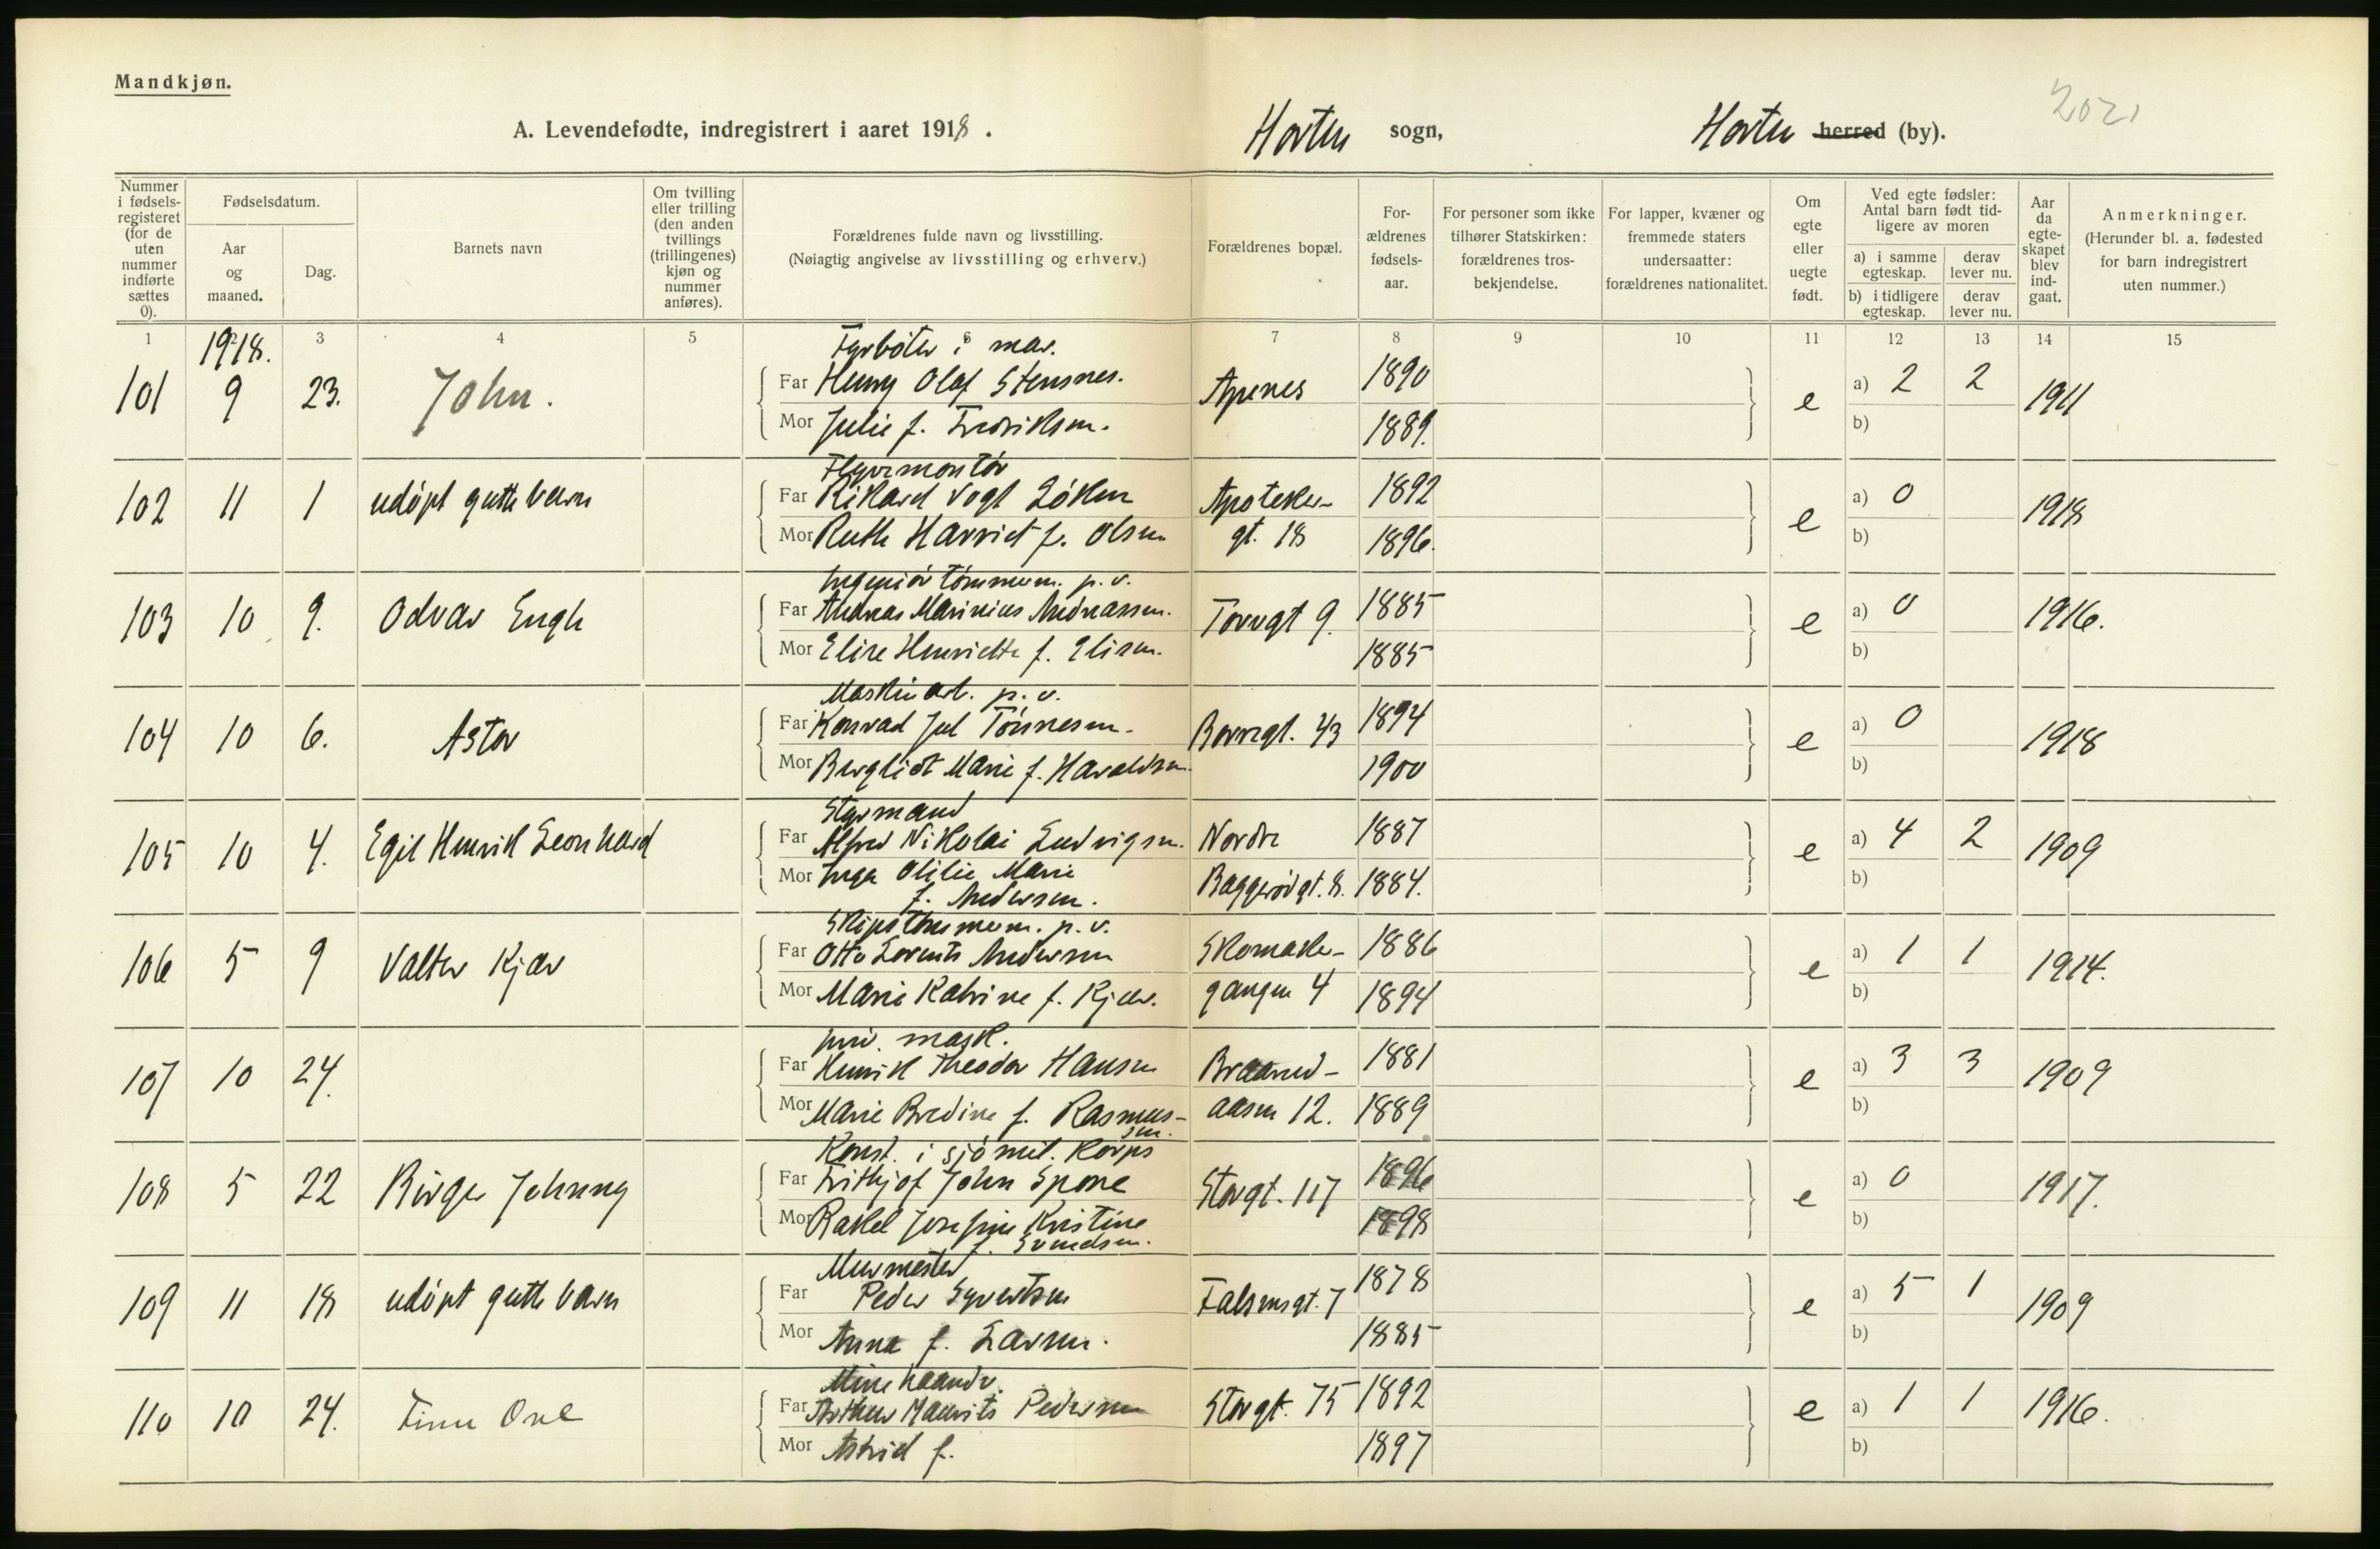 Mandkjøn.
2021
A. Levendefødte, indregistrert i aaret 1918. Horten sogn, Horten herred (by).
Nummer i fødselsregisteret (for de uten nummer indførte sættes 0).
Fødselsdatum.
Aar og maaned.
Dag.
Barnets navn
Om tvilling eller trilling (den anden tvillings (trillingenes) kjøn og nummer anføres).
Forældrenes fulde navn og livsstilling.
(Nøiagtig angivelse av livsstilling og erhverv.)
Forældrenes bopæl.
Forældrenes fødselsaar.
For personer som ikke tilhører Statskirken: forældrenes trosbekjendelse.
For lapper, kvæner og fremmede staters undersaatter: forældrenes nationalitet.
Om egte eller uegte født.
Ved egte fødsler: Antal barn født tidligere av moren
a) i samme egteskap. derav lever nu.
b) i tidligere egteskap. derav lever nu.
Aar da egteskapet blev indgaat.
Anmerkninger.
(Herunder bl. a. fødested for barn indregistrert uten nummer.)
1 2 3 4 5 6 7 8 9 10 11 12 13 14 15
1918.
Fyrbøter i mar.
101 9 23. John. Far Henry Olaf Stensnes. Apenes 1890 e a) 2 2 1911
Mor Julie f. Fredriksen. 1889. b)
Flyvemontør
102 11 1 udøpt guttebarn Far Rikard Vogt Løken Apoteker- 1892 e a) 0 1918
Mor Ruth Harriet f. Olsen gt. 18 1896. b)
Ingeniør tømmerm. p. v.
103 10 9. Odvar Engh Far Andreas Marinius Andreassen. Torvgt 9. 1885 e a) 0 1916.
Mor Elise Henriette f. Elisen. 1885 b)
Maskinarb. p. v.
104 10 6. Astor Far Konrad Jul Tønnesen. Borregt. 43 1894 e a) 0 1918
Mor Bergliot Marie f. Haraldsen. 1900 b)
Styrmand
105 10 4. Egil Henrik Leonhard Far Alfred Nikolai Ludvigsen. Nordre 1887 e a) 4 2 1909
Mor Inga Otilie Marie Baggerødgt. 8. 1884. b)
f. Andersen.
Skipstømmerm. p. v.
106 5 9 Valter Kjær Far Otto Lorents Andersen Skomaker- 1886 e a) 1 1 1914.
Mor Marie Katrine f. Kjær. gangen 4 1894 b)
mask.
107 10 24. Far Henrik Theodor Hansen Braarud- 1881 e a) 3 3 1909
Mor Marie Bredine f. Rasmus- aasen 12. 1889 b)
sen.
Konst. i sjømil. korps
108 5 22 Birger Johnny Far Fritjof John Spone Storgt. 117 1896 e a) 0 1917.
Mor Rakel Josefine Kristine 1898 b)
f. Svendsen.
Murmester
109 11 18 udøpt guttebarn Far Peder Syvertsen Falsensgt. 7 1878 e a) 5 1 1909
Mor Anna f. Larsen. 1885 b)
Mine haandv.
110 10 24. Finn Ove Far Arthur Maurits Pedersen Storgt. 75 1892 e a) 1 1 1916.
Mor Astrid f. 1897 b)